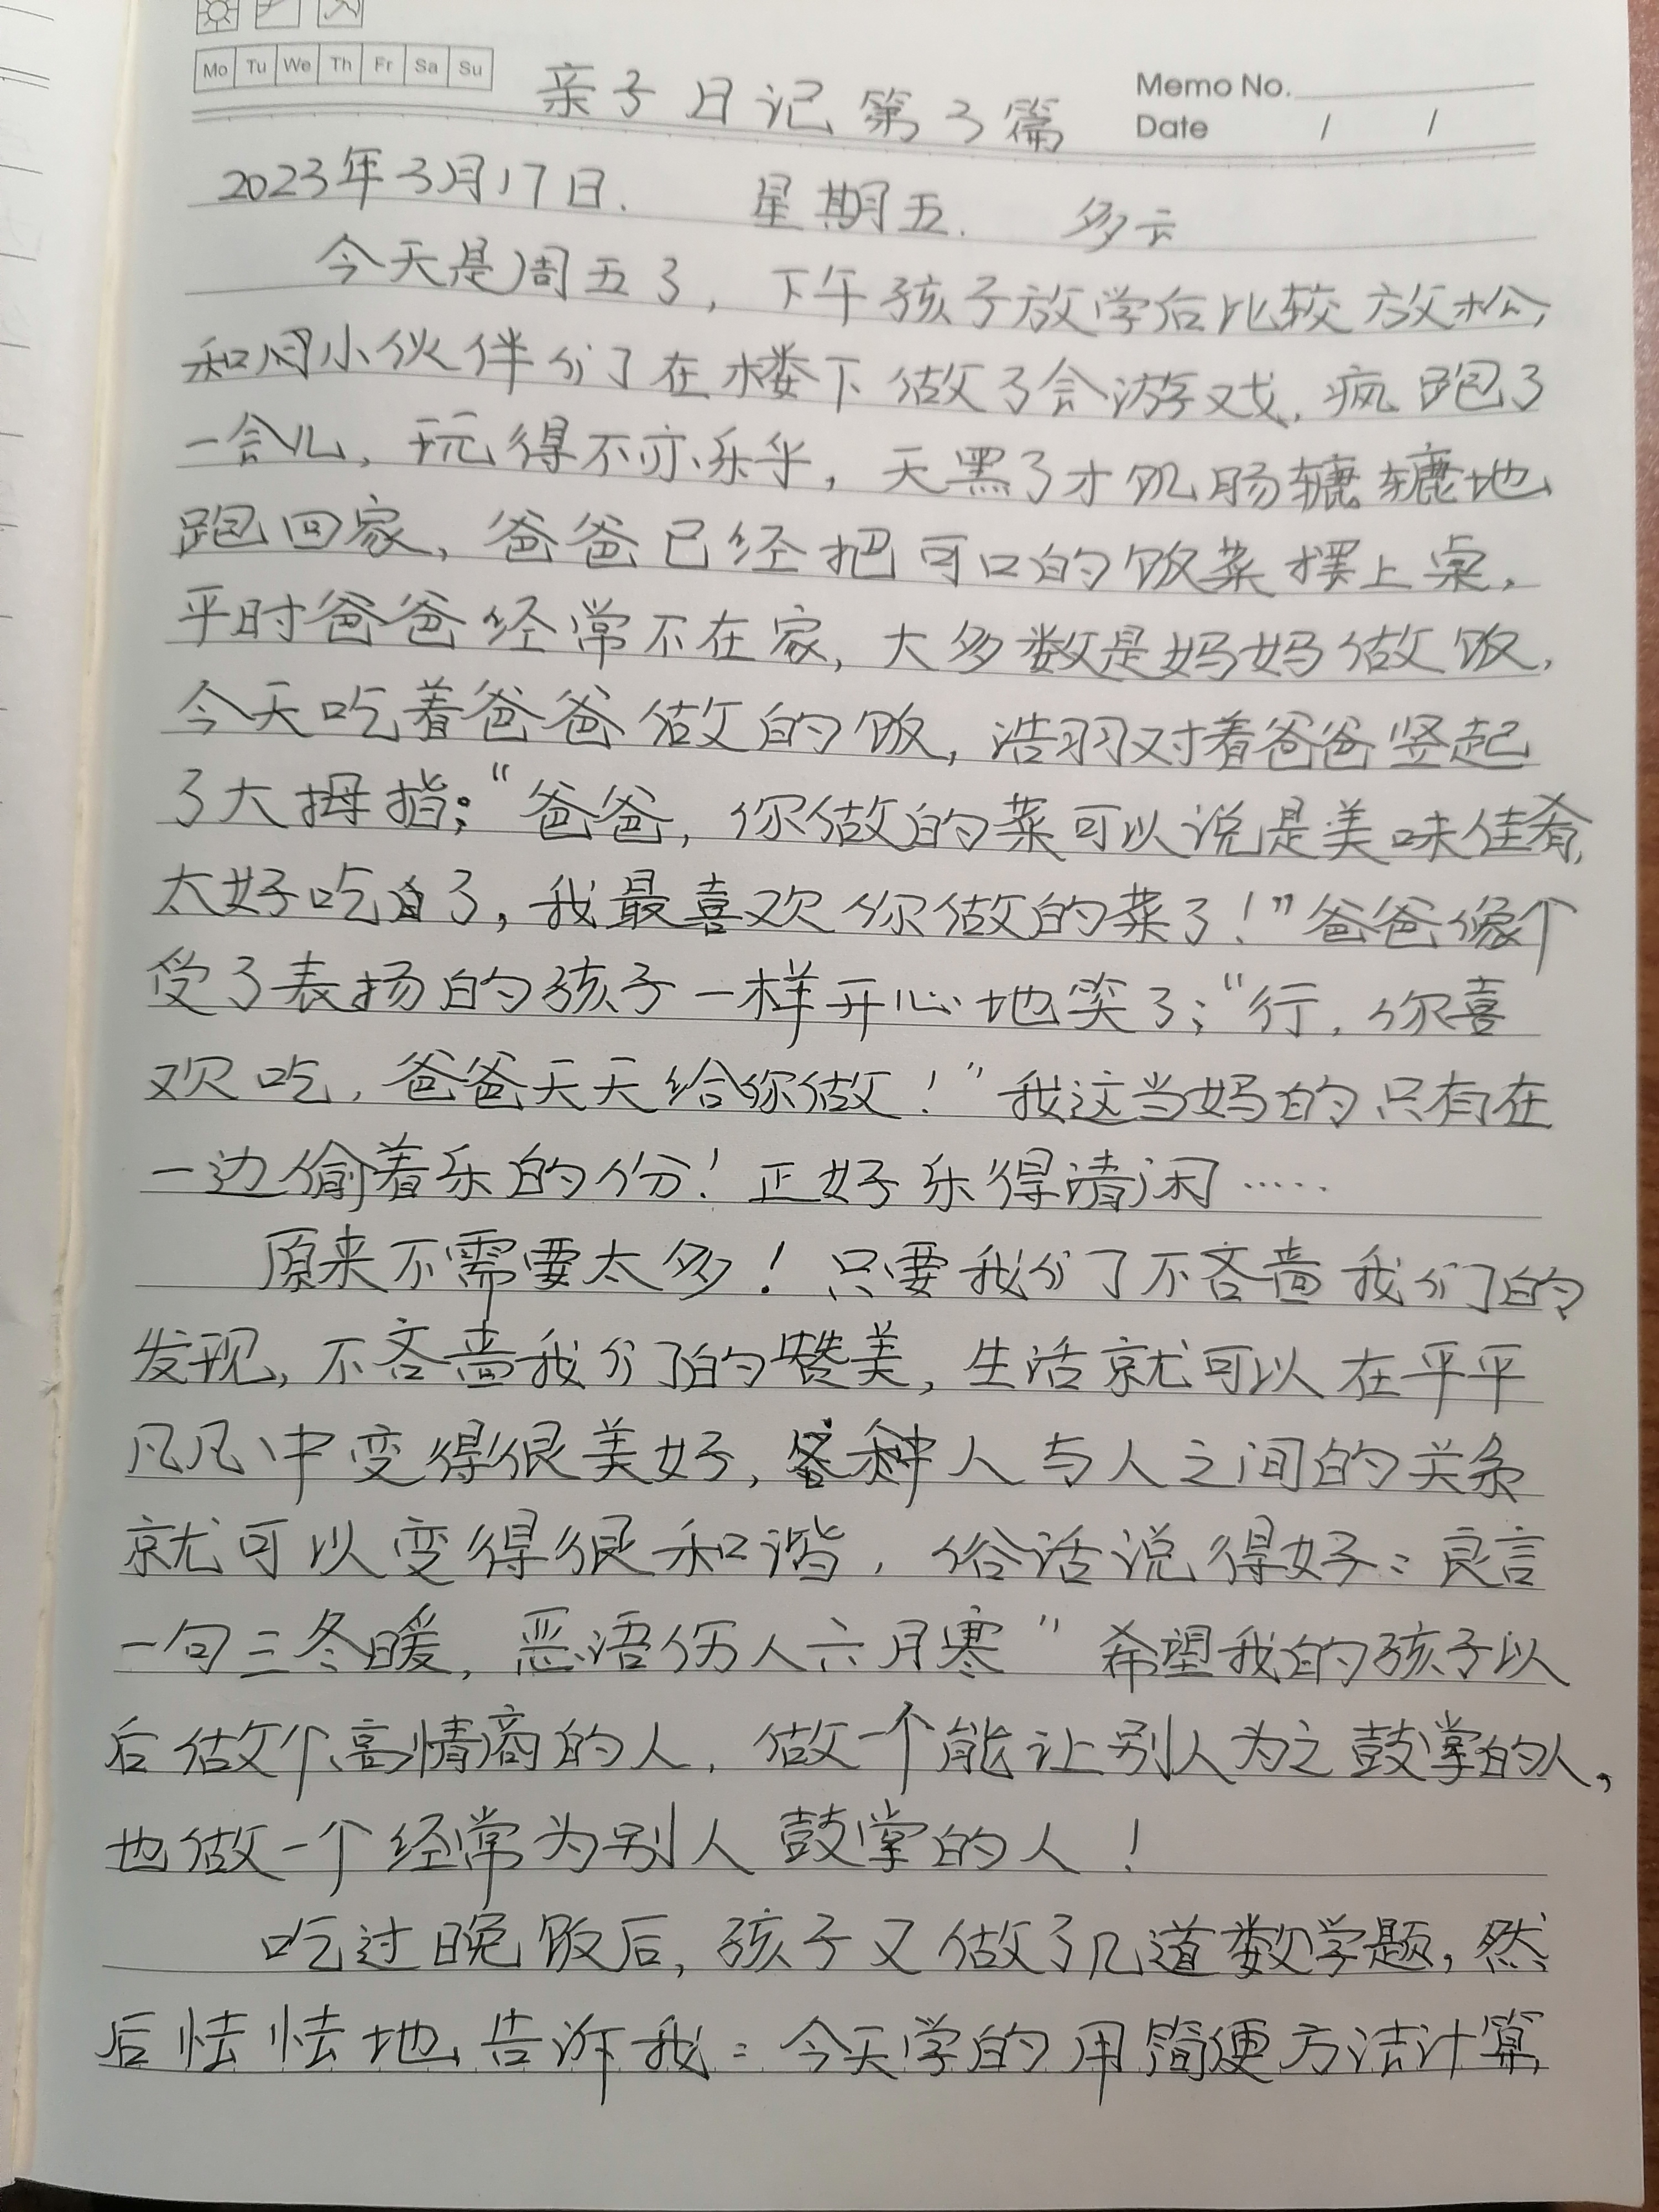 Mo Tu We Th Fr Sa Su
亲子日记第3篇
Memo No.
Date / /
2023年3月17日. 星期五. 多云
今天是周五了，下午孩子放学后比较放松，
和同小伙伴们在楼下做了会游戏，疯跑了
一会儿，玩得不亦乐乎，天黑了才饥肠辘辘地
跑回家，爸爸已经把可口的饭菜摆上桌，
平时爸爸经常不在家，大多数是妈妈做饭，
今天吃着爸爸做的饭，浩羽对着爸爸竖起
了大拇指；“爸爸，你做的菜可以说是美味佳肴，
太好吃了，我最喜欢你做的菜了！”爸爸像个
受了表扬的孩子一样开心地笑了；“行，你喜
欢吃，爸爸天天给你做！”我这当妈的只有在
一边偷着乐的份！正好乐得清闲……
原来不需要太多！只要我们不吝啬我们的
发现，不吝啬我们的赞美，生活就可以在平平
凡凡中变得很美好，各种人与人之间的关系
就可以变得很和谐，俗话说得好：良言
一句三冬暖，恶语伤人六月寒”希望我的孩子以
后做个高情商的人，做一个能让别人为之鼓掌的人，
也做一个经常为别人鼓掌的人！
吃过晚饭后，孩子又做了几道数学题，然
后怯怯地告诉我：今天学的用简便方法计算，